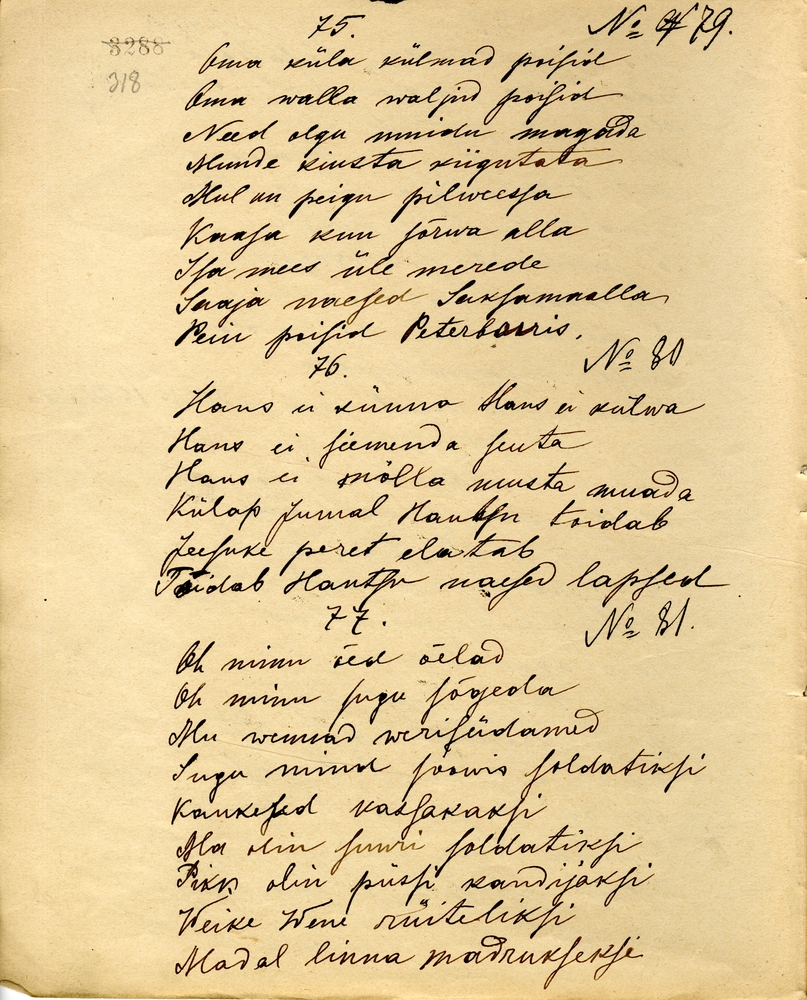 75. No 79.
3288
318
Oma küla külmad poisid
Oma walla waljud poisid
Need olgu minuda magada
Munde kiusta kiigutata
Mul on peigu pilweessa
Kaasa kuu sõrwa alla
Isa mees üle merede
Saaja naesed Saksamaalla
Pein poisid Peterburris.
76. No 80
Hans ei künna Hans ei külwa
Hans ei seemenda
Hans ei mõlla musta muada
Külap Jumal Hantsu toidab
Jeesuke peret elatab
Toidab Hantsu naesed lapsed
77. No 81.
Oh minu õed õelad
Oh minu sugu sõgeda
Mu wennad werisüdamed
Sugu mind soowis soldatiksi
Kaukesed kassakaksi
Ma olin suuri soldatiksi
Pikk olin püssi kandijaksi
Weike Wene rüiteliksi
Madal linna madrukseksi